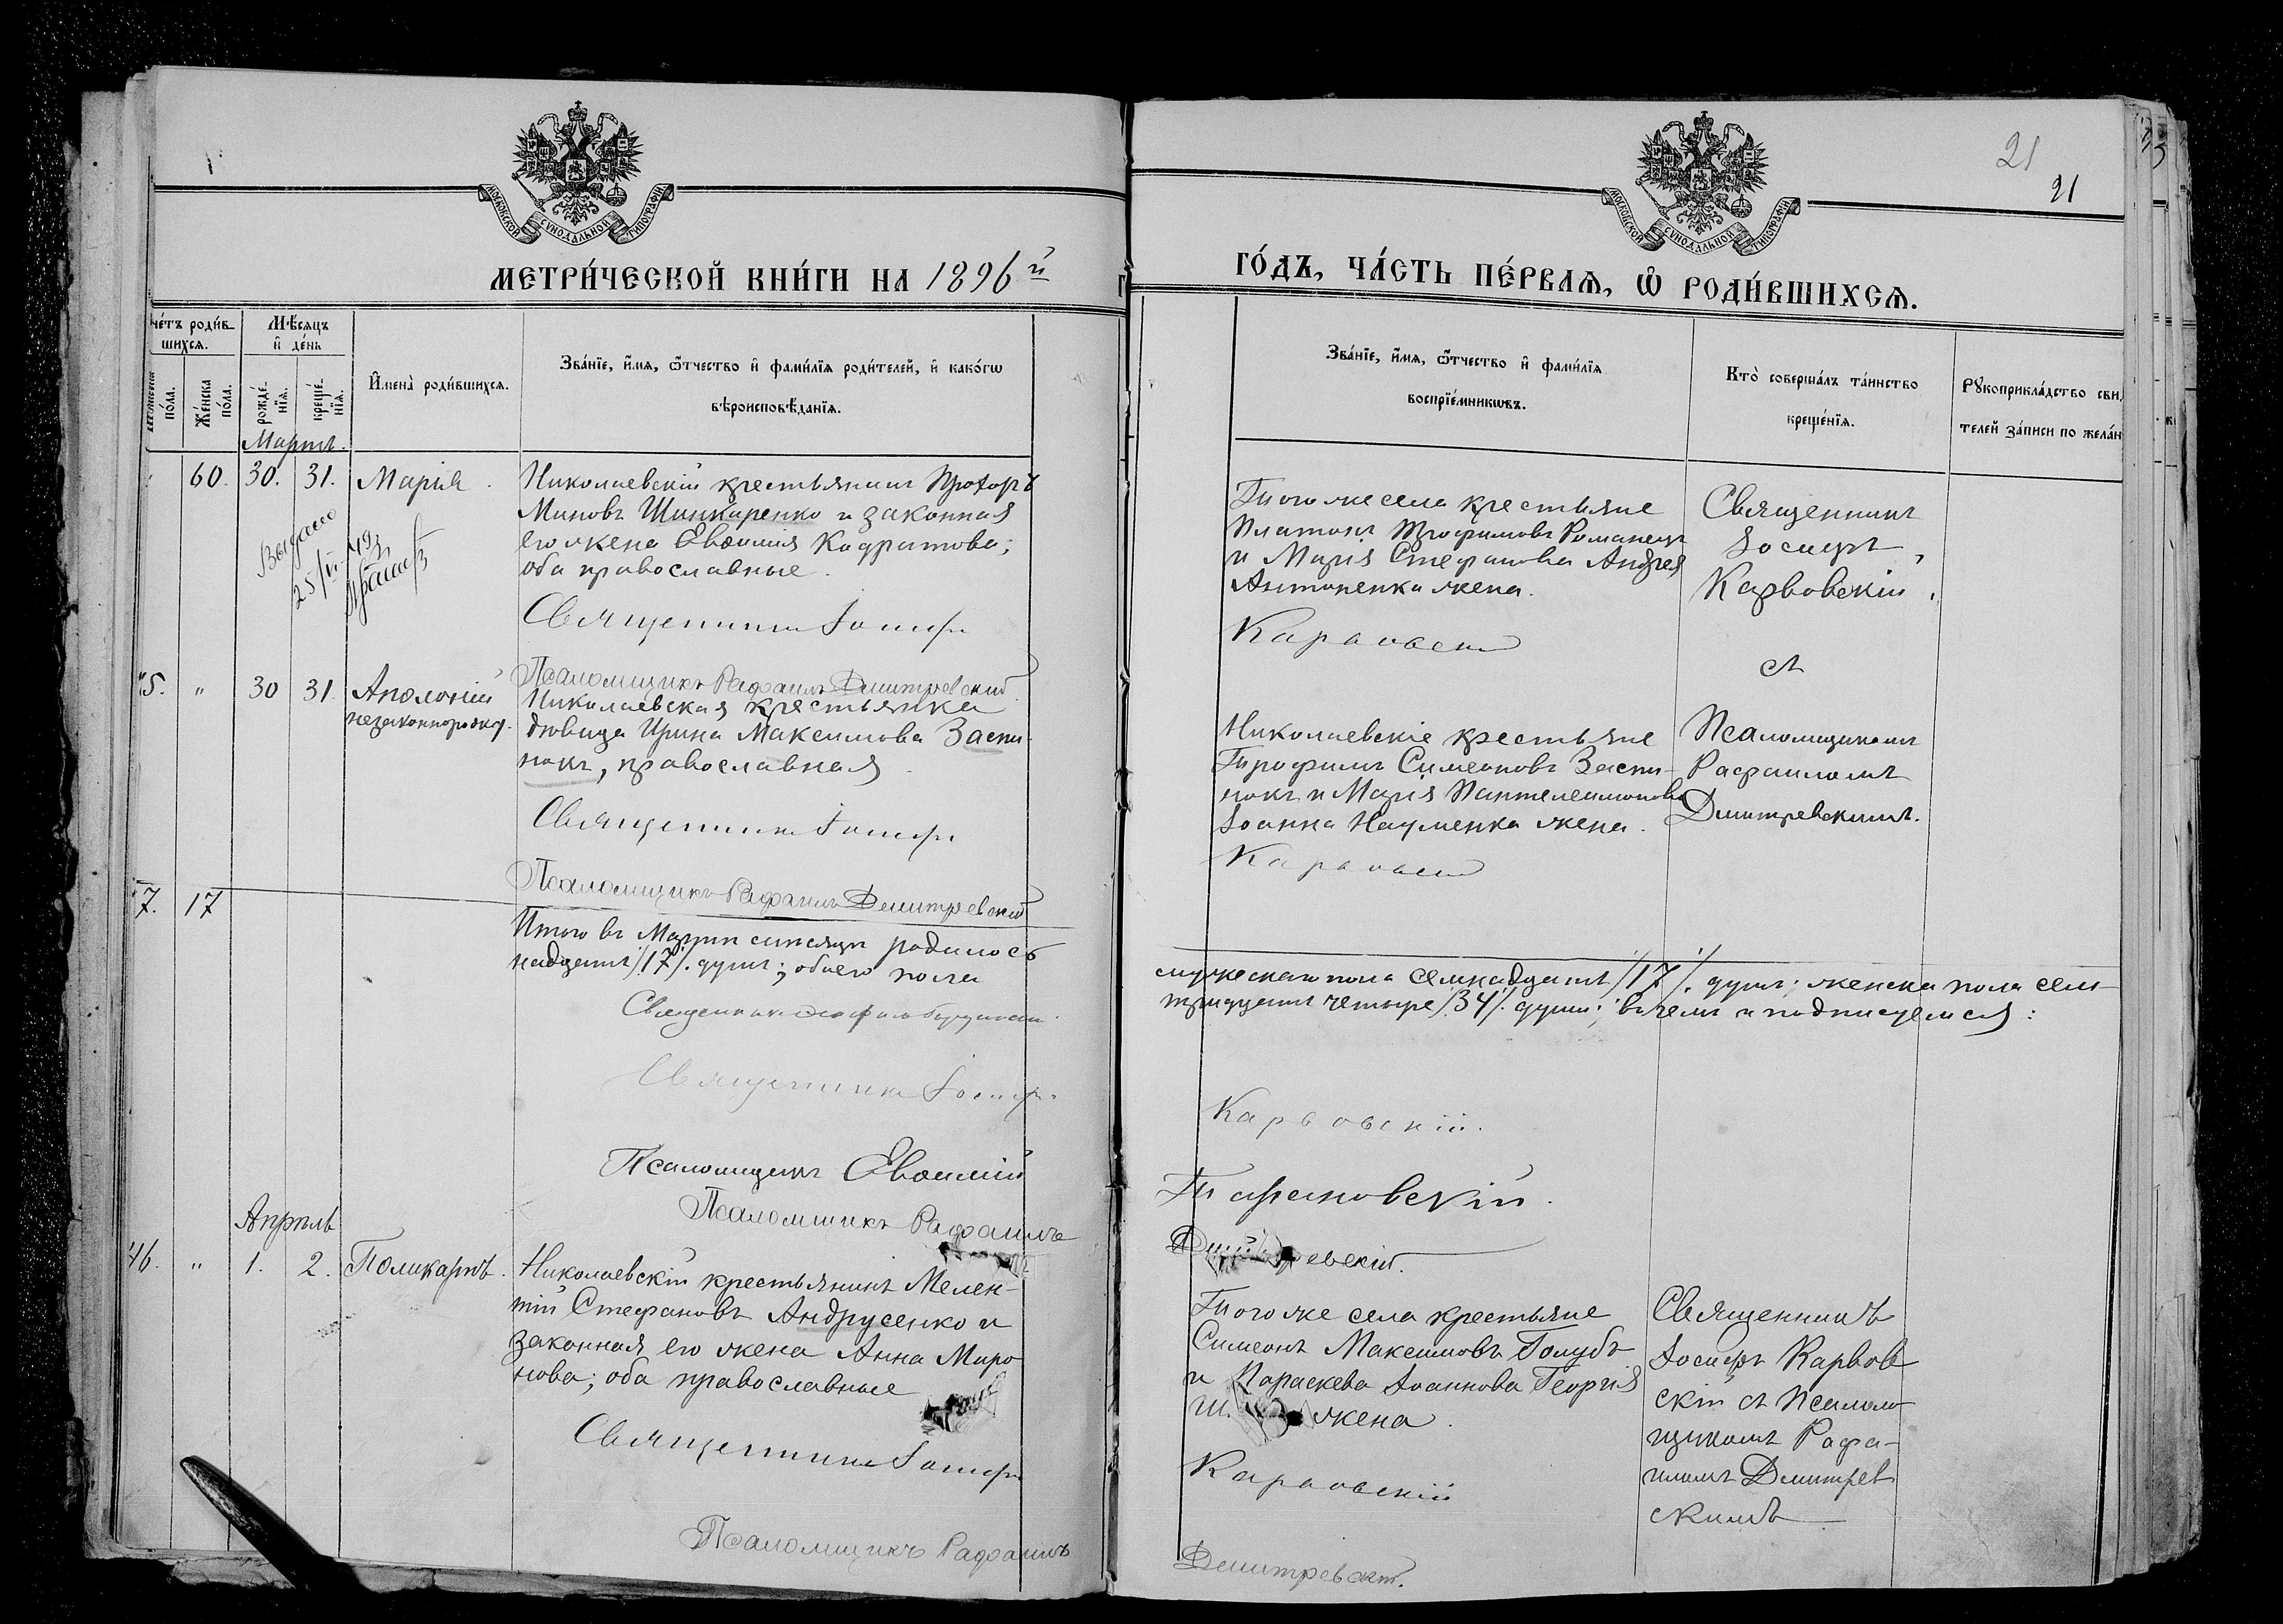 МОСКОВСКОЙ СѴНОДАЛЬНОЙ ТИПОГРАФІИ
МЕТРИ́ЧЕСКОЙ КНИ́ГИ НА 1896й
че́тъ роди́в-
шихсѧ.
Мѣ́сѧцъ
и҆ де́нь
по́ла.
Же́нска
по́ла.
рожде́-
нїѧ.
креще́-
нїѧ.
И҆мена̀ роди́вшихсѧ.
Зва́нїе, и҆́мѧ, ѻ҆́тчество и҆ фами́лїѧ роди́телей, и҆ како́гѡ
вѣроисповѣ́данїѧ.
Мартъ.
60. 30. 31. Марія.
Николаевскій крестьянинъ Прохоръ
Миновъ Шинкаренко и законная
его жена Евѳимія Кодратова;
оба православные.
Выдано
25/VI
Священникъ Іосифъ
Псаломщикъ Рафаилъ Дмитревскій
5. " 30 31. Аполоній
незаконнорожд.
Николаевская крестьянка
дѣвица Ирина Максимова Заспи-
нокъ, православная
Священникъ Іосифъ
Псаломщикъ Рафаилъ Дмитревскій
17. 17
Итого въ Мартѣ мѣсяцѣ родилось
надцать /17/. душъ; обоего пола
Священникъ Іосифъ
Псаломщикъ Евѳимій
Псаломщикъ Рафаилъ
Апрѣль
46. " 1. 2. Поликарпъ.
Николаевскій крестьянинъ Мелен-
тій Стефановъ Андрусенко и
законная его жена Анна Миро
нова; оба православные
Священникъ Іосифъ
Псаломщикъ Рафаилъ
21
21
МОСКОВСКОЙ СѴНОДАЛЬНОЙ ТИПОГРАФІИ
ГО́ДЪ, ЧА́СТЬ ПЕ́РВАѦ, Ѡ҆ РОДИ́ВШИХСѦ.
Зва́нїе, и҆́мѧ, ѻ҆́тчество и҆ фами́лїѧ
воспрїе́мникѡвъ.
Кто̀ соверша́лъ та́инство
креще́нїѧ.
Рꙋкоприкла́дство сви
телей за́писи по жела́н
Того же села крестьяне
Платонъ Трофимовъ Романецъ
и Марія Стефанова Андрея
Антоненка жена.
Карвовскій
Священникъ
Іосифъ
Карвовскій
съ
Николаевскіе крестьяне
Трофимъ Симеоновъ Заспи-
нокъ и Марія Пантелеимонова
Іоанна Науменка жена.
Карвовскій
Псаломщикомъ
Рафаиломъ
Дмитревскимъ.
мужескаго пола семнадцать /17/. душъ; женска пола сем-
тридцать четыре /34/. души; въ чемъ и подписуемся:
Карвовскій.
Тарановскій.
Того же села крестьяне
Симеонъ Максимовъ Голубъ
и Параскева Іоаннова Георгія
жена.
Карвовскій
Священникъ
Іосифъ Карвов
скій съ Псалом
щикомъ Рафа-
иломъ Дмитрев
скимъ
Дмитревскій.